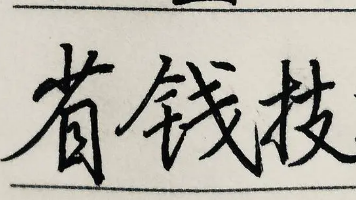 省钱技